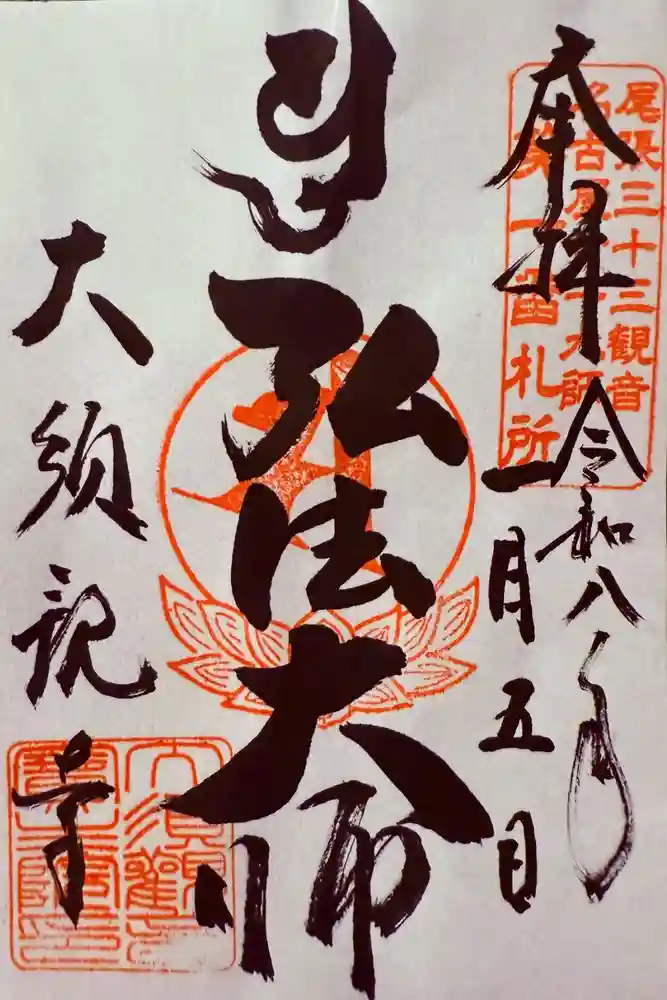 奉拝
令和八年
一月五日
尾張三十三観音
名古屋二十一大師
第一番札所
弘法大師
大須観音
大須観音
寶生院印